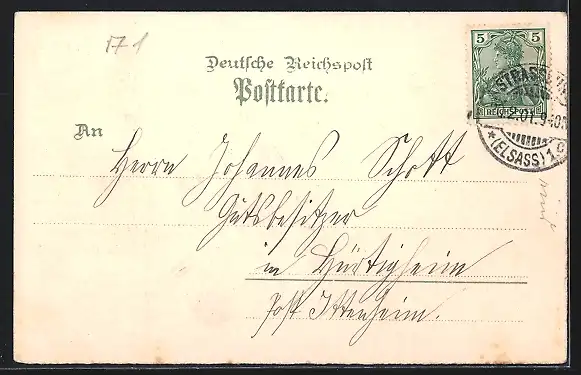 171
Deutsche Reichspost
Postkarte.
An
Herrn Johannes Schott
Gutsbesitzer
in Hürtigheim
Post Ittenheim.
5 5
REICHSPOST
STRASSBURG
2.01.9-10
*(ELSASS)1